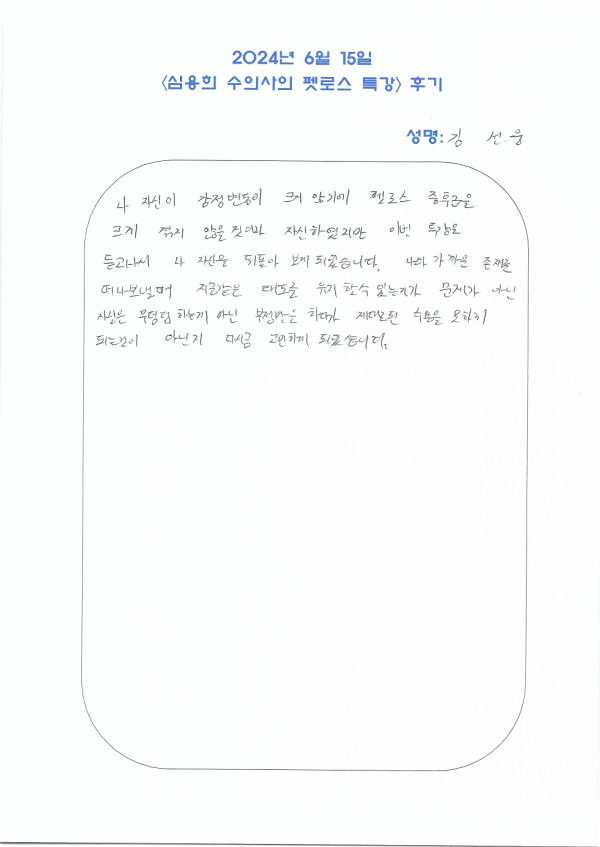 2024년 6월 15일
<심용희 수의사의 펫로스 특강> 후기
성명: 김 선웅
나 자신이 감정변동이 크지 않기에 펫로스 증후군을
크게 겪지 않을 것이라 자신하였지만 이번 특강을
듣고나서 나 자신을 되돌아 보게 되었습니다. 나와 가까운 존재를
떠나보낼때 지금같은 태도를 유지할수 있는지가 문제가 아닌
사실은 무덤덤하는게 아닌 부정만을 하다가 제대로된 수용을 못하게
되는것이 아닌지 다시금 고민하게 되었습니다.